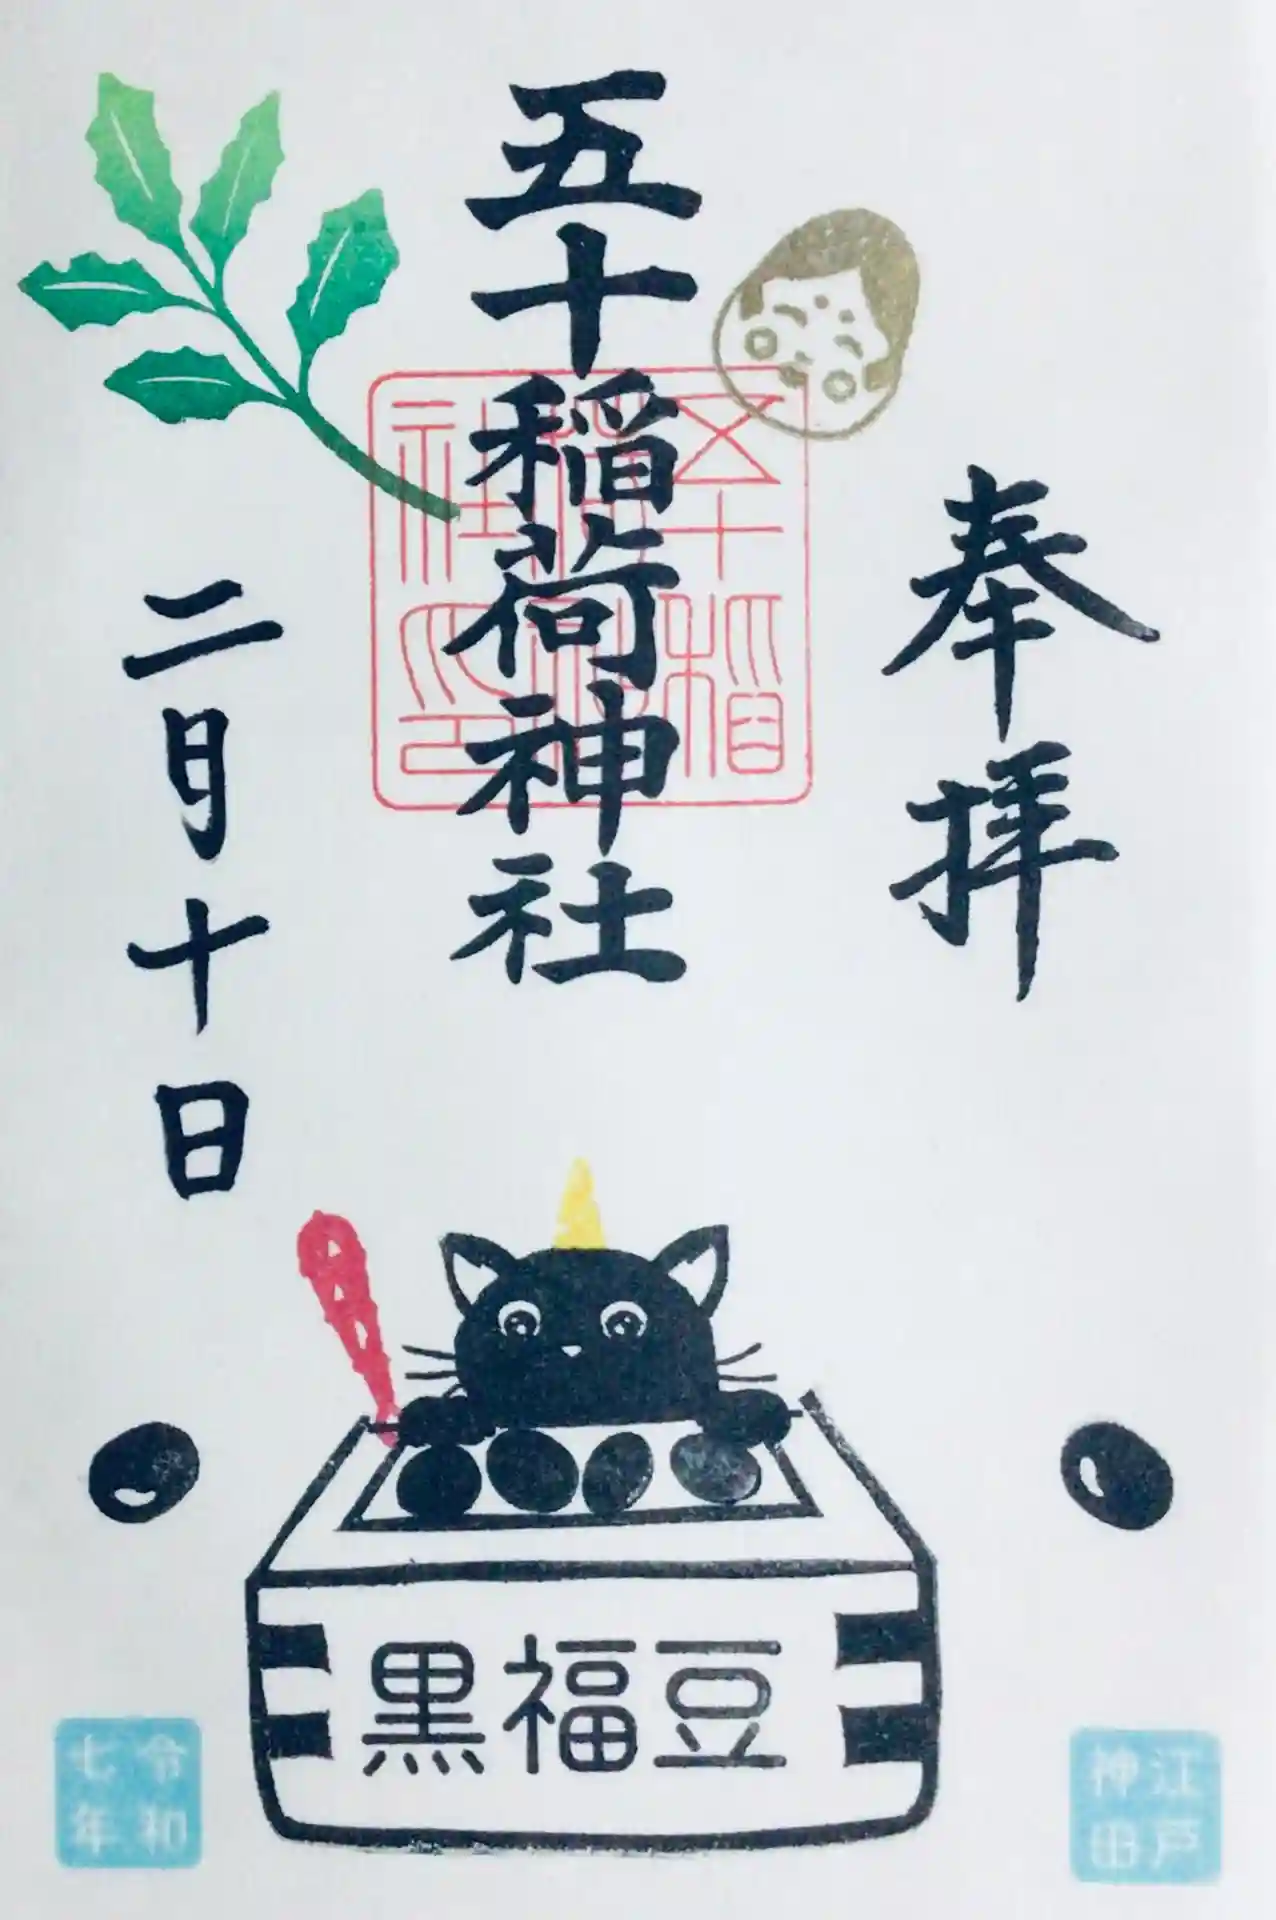 奉拝
五十稲荷神社
五十稲
荷神
社印
二月十日
黒福豆
江戸
神田
令和
七年